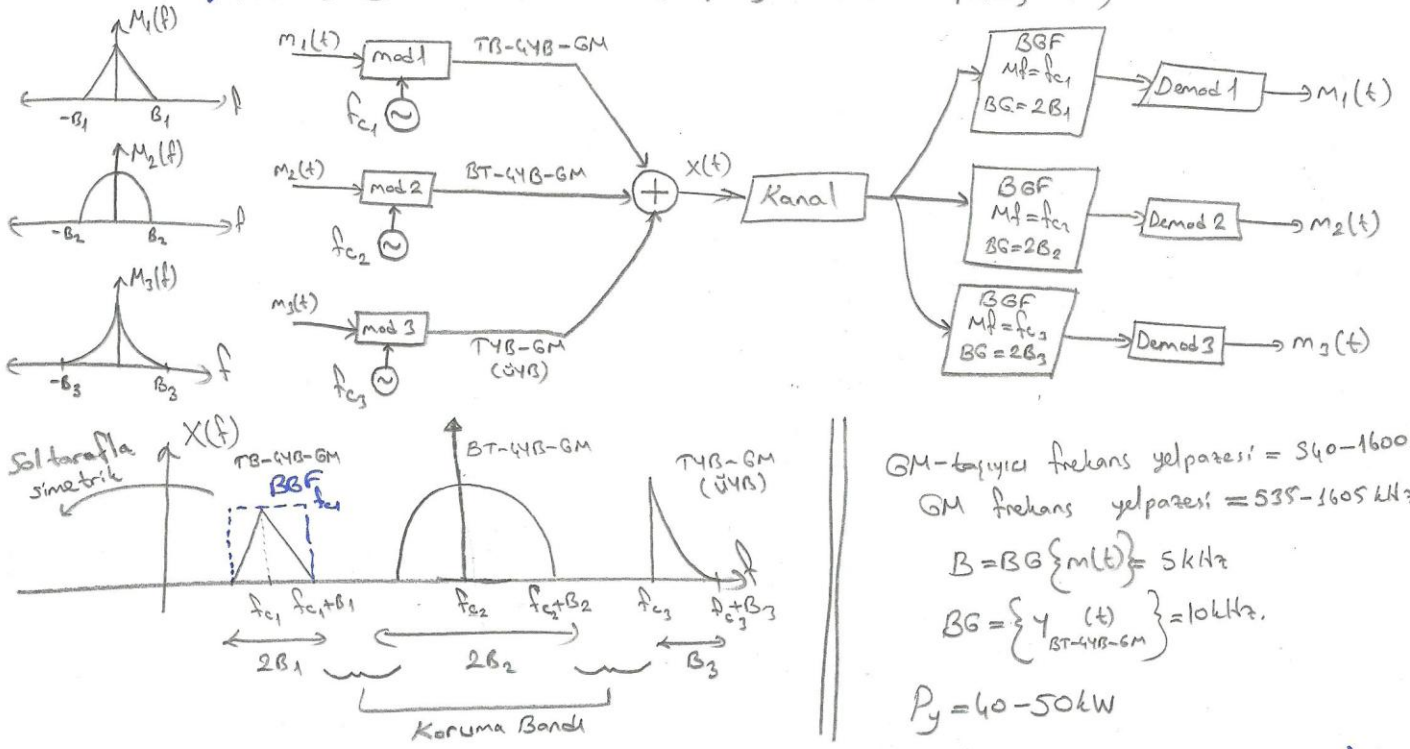 M₁(f)
-B₁ B₁ f
M₂(f)
-B₂ B₂ f
M₃(f)
-B₃ B₃ f
m₁(t) mod1 TB-GYB-GM
fc₁
m₂(t) mod2 BT-GYB-GM
fc₂
m₃(t) mod 3 TYB-GM
(ÜYB)
fc₃
+ X(t) Kanal
BGF
Mf=fc₁
BG=2B₁
Demod1 m₁(t)
BGF
Mf=fc₂
BG=2B₂
Demod 2 m₂(t)
BGF
Mf=fc₃
BG=2B₃
Demod3 m₃(t)
Sol tarafla
simetrik
X(f)
TB-GYB-GM
BGF
fc₁
BT-GYB-GM
TYB-GM
(ÜYB)
f
fc₁ fc₁+B₁ fc₂ fc₂+B₂ fc₃ fc₃+B₃
2B₁ 2B₂ B₃
Koruma Bandı
GM-taşıyıcı frekans yelpazesi = 540-1600
GM frekans yelpazesi = 535-1605 kHz
B = BG{m(t)} = 5 kHz
BG = {y(t) BT-GYB-GM} = 10 kHz.
Py = 40-50kW